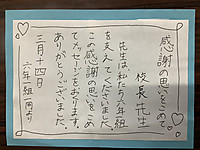 感謝の思いをこめて。
校長先生
先生は、私たち六年一組
を支えてくださいました。
この感謝の思いをこめ
てメッセージをおくります。
ありがとうございました。
三月十四日
六年一組一同より